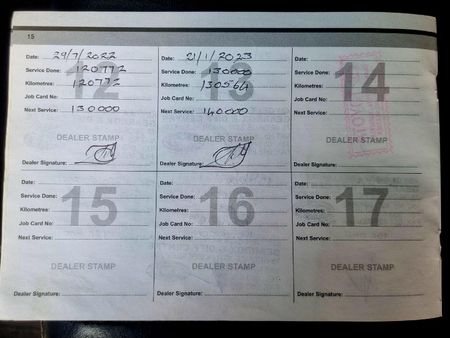 15
Date: 29/7/2022
Service Done: 120772
Kilometres: 120772
Job Card No:
Next Service: 130000
12
DEALER STAMP
Dealer Signature:
Date: 21/1/2023
Service Done: 130000
Kilometres: 130564
Job Card No:
Next Service: 140000
13
DEALER STAMP
Dealer Signature:
Date:
Service Done:
Kilometres:
Job Card No:
Next Service:
14
DEALER STAMP
Dealer Signature:
Date:
Service Done:
Kilometres:
Job Card No:
Next Service:
15
DEALER STAMP
Dealer Signature:
Date:
Service Done:
Kilometres:
Job Card No:
Next Service:
16
DEALER STAMP
Dealer Signature:
Date:
Service Done:
Kilometres:
Job Card No:
Next Service:
17
DEALER STAMP
Dealer Signature: